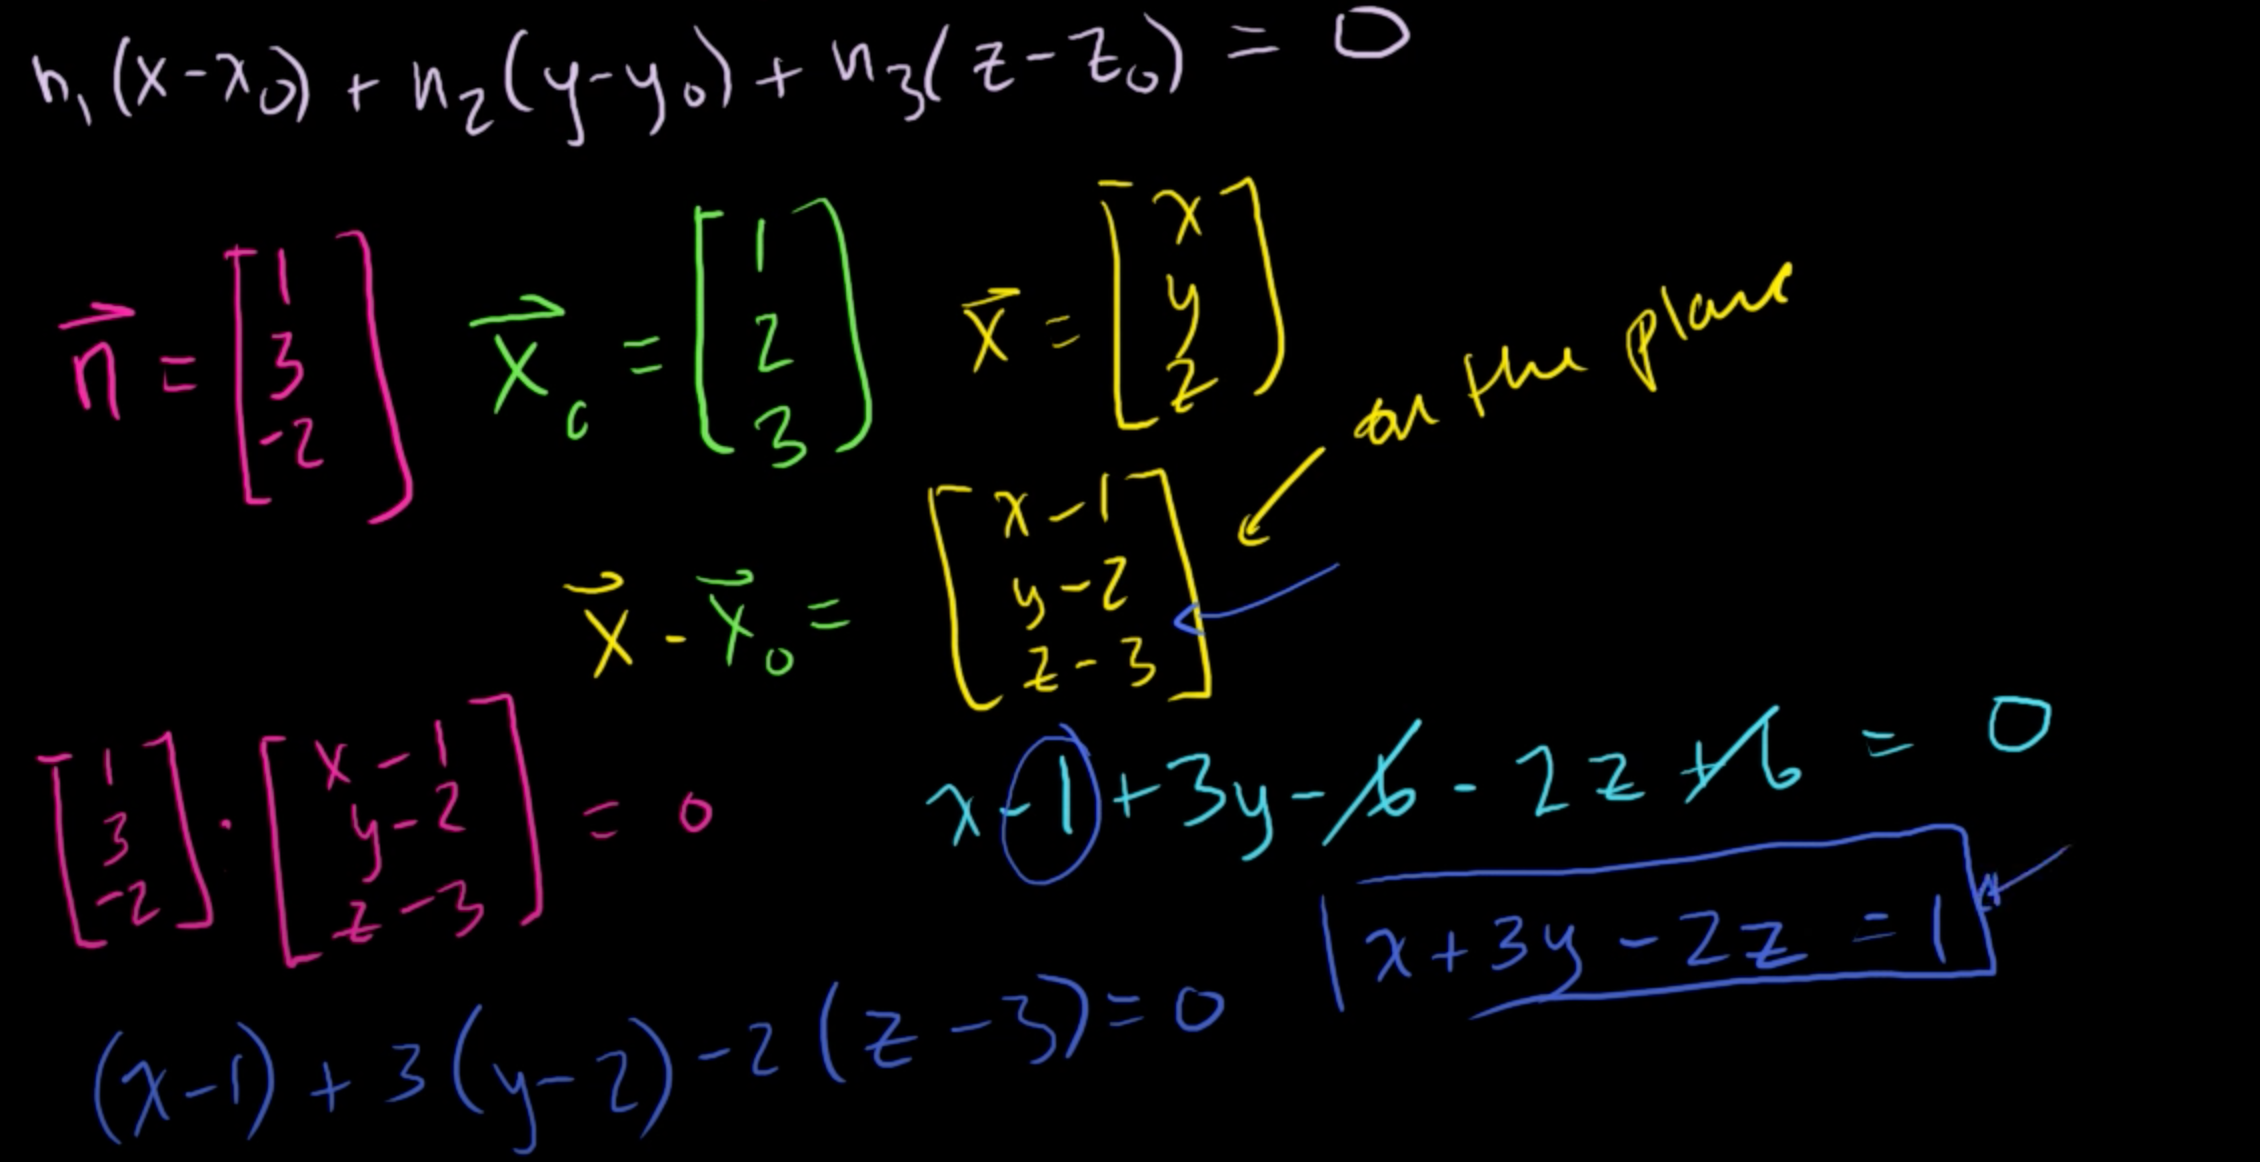 n₁(x-x₀) + n₂(y-y₀) + n₃(z-z₀) = 0
n⃗ = [1 3 -2] x⃗₀ = [1 2 3] x⃗ = [x y z]
on the plane
x⃗ - x⃗₀ = [x-1 y-2 z-3]
[1 3 -2] · [x-1 y-2 z-3] = 0
x-1+3y-6-2z+6 = 0
x+3y-2z=1
(x-1)+3(y-2)-2(z-3)=0